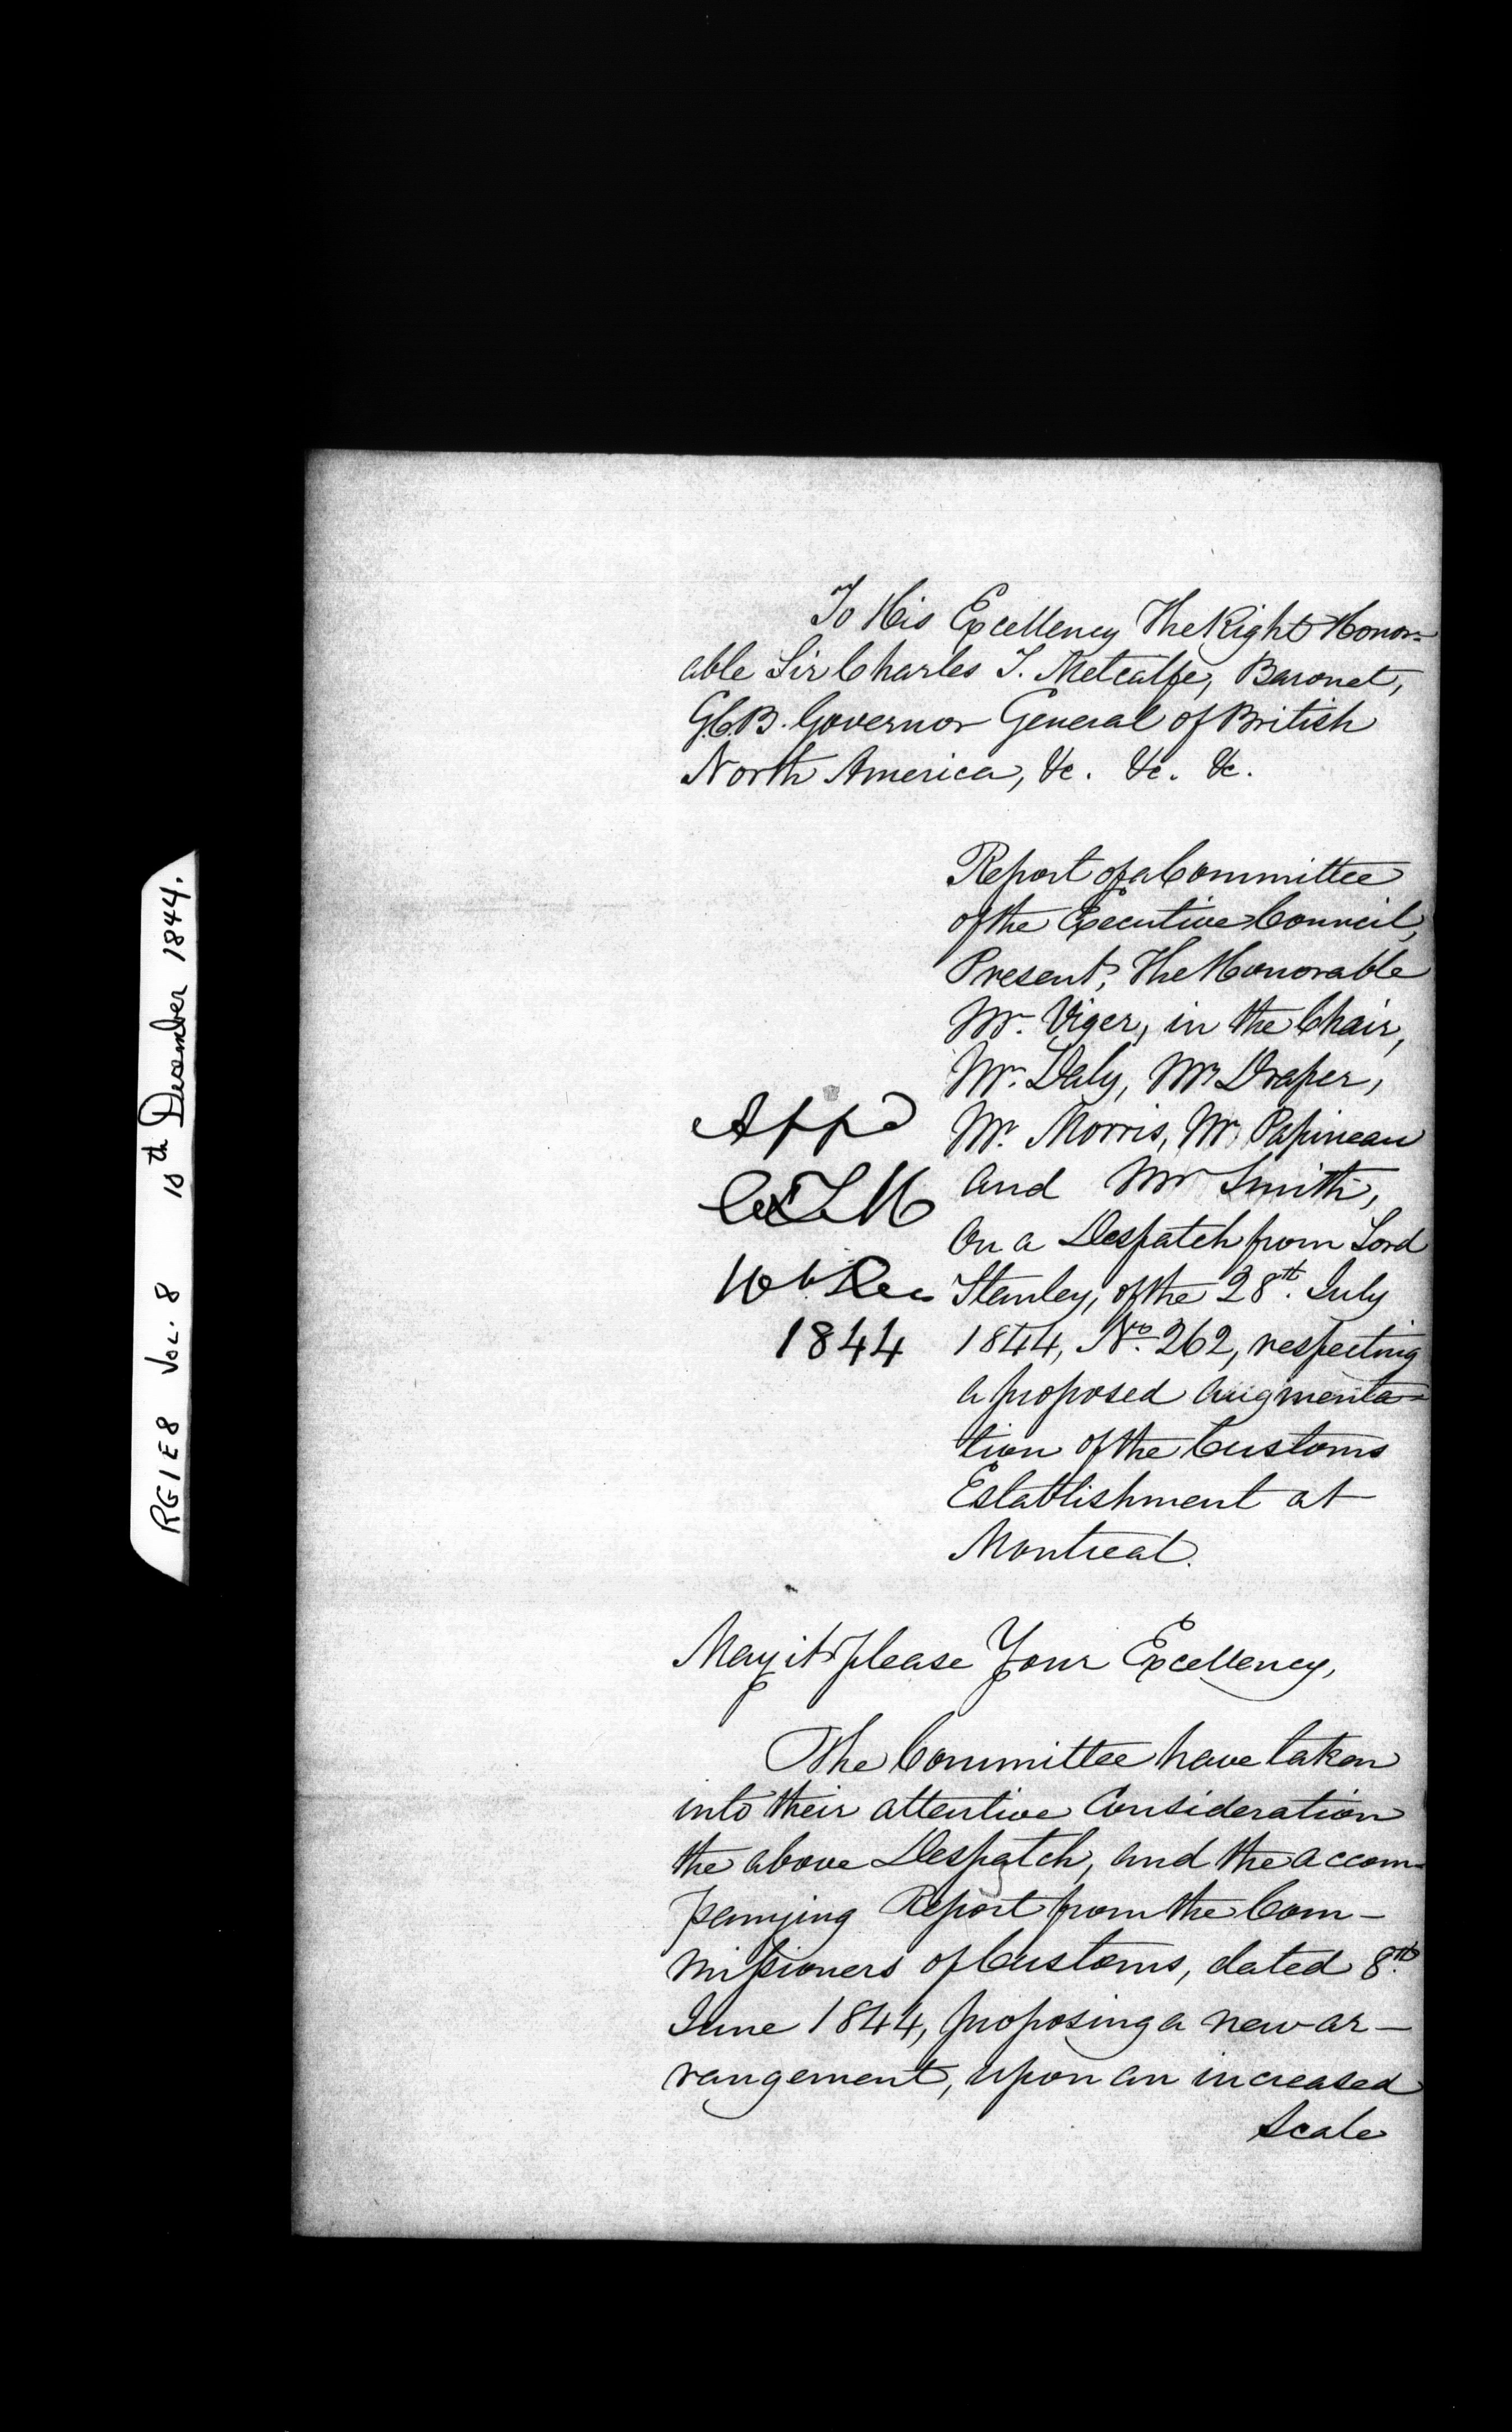 To His Excellency The Right Honor=
able Sir Charles T. Metcalfe, Baronet,
G.C.B. Governor General of British
North America, &c. &c. &c.
Report of a Committee
of the Executive Council,
Present, The Honorable
Mr. Viger, in the Chair,
Mr. Daly, Mr Draper,
Mr. Morris, Mr. Papineau
and Mr Smith,
On a Despatch from Lord
Stanley, of the 28th. July
1844, No. 262, respecting
a proposed augmenta=
tion of the Customs
Establishment at
Montreal.
Appd
CTM
Dec
1844
May it please Your Excellency,
The Committee have taken
into their attentive Consideration
the above Despatch, and the accom-
panying Report from the Com-
missioners of Customs, dated 8th.
June 1844, proposing a new ar-
rangement, upon an increased
Scale
RG1E8 VOL. 8 10th December 1844.